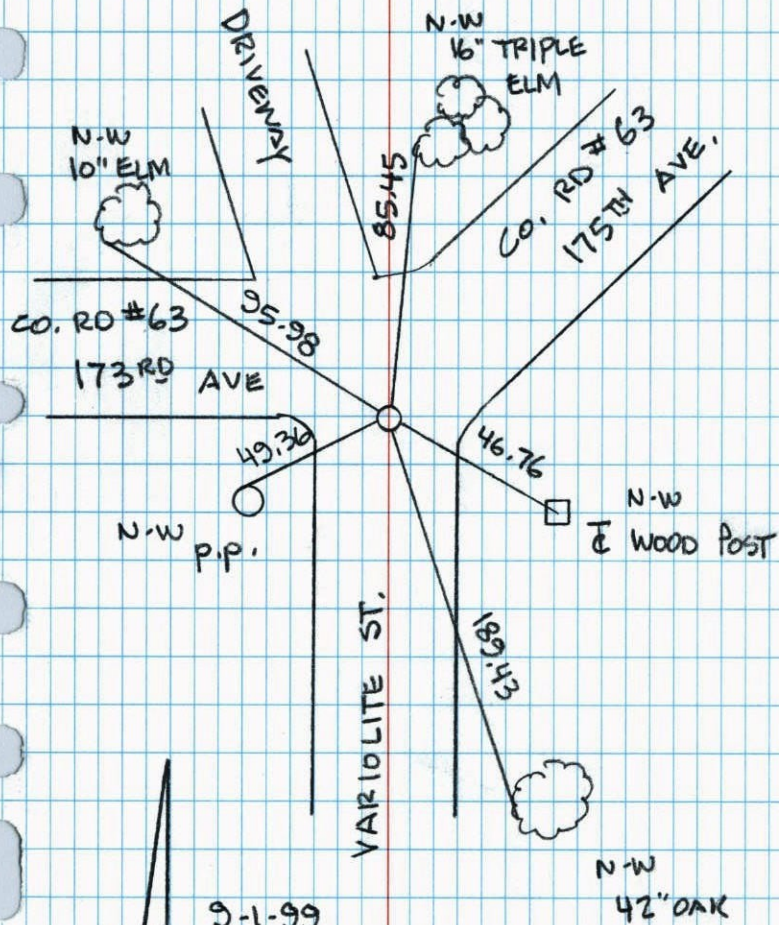 DRIVEWAY
N-W
16" TRIPLE
ELM
N-W
10" ELM
85.45
CO. RD # 63
175TH AVE.
CO. RD #63
173RD AVE
95.98
49.36
46.76
N-W
P.P.
N-W
℄ WOOD POST
VARIOLITE ST.
189.43
N-W
42" OAK
9-1-99